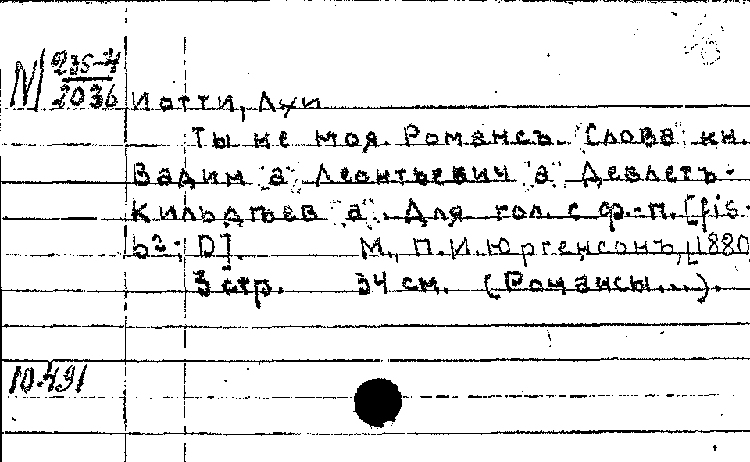 М 235-4
2036
Иотти, Лхи
Ты не моя. Романсъ. "Слова" кн.
Вадим "а" Леонтьевич "а" Девлетъ-
Кильдѣев "а". Для гол. с ф.-п. [fis-
b²; D]. М., П.И.Юргенсонъ, [1880
3 стр. 34 см. (Романсы...).
10491